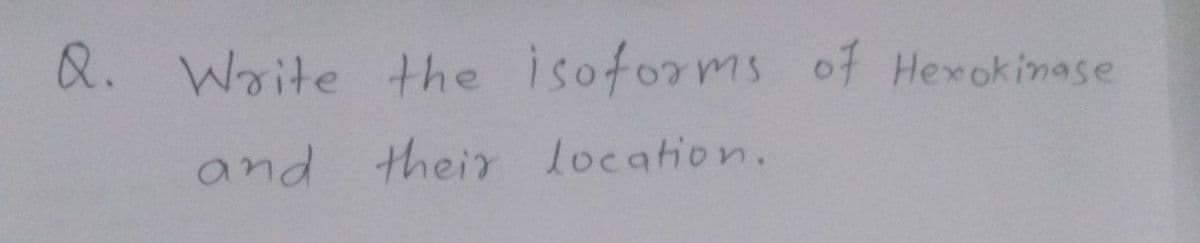 Q. Write the isoforms of Hexokinase
and their location.